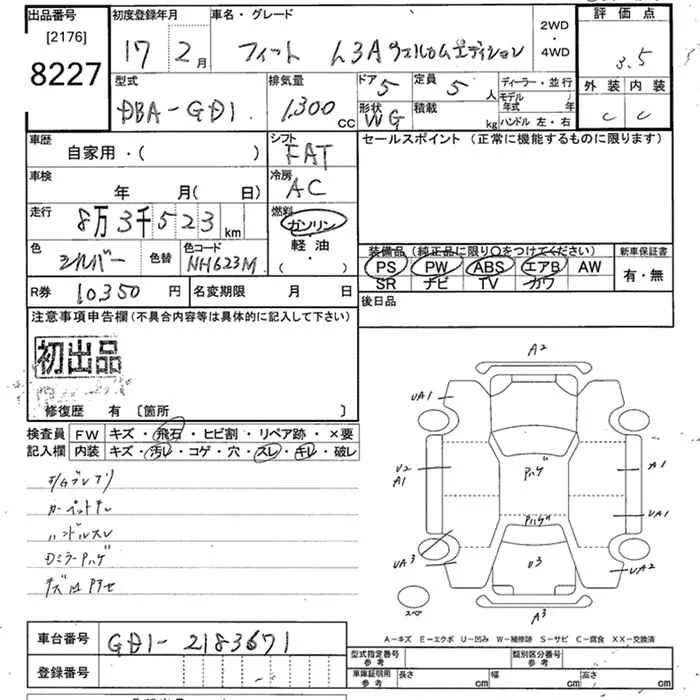 出品番号 初度登録年月 車名・グレード 2WD・4WD 評価点
[2176]
8227
17 2月 フィット L3A ウェルカムエディション 3.5
外装 内装
C C
型式 排気量 ドア 5 定員 5人 ディーラー・並行
DBA-GD1 1,300cc 形状 WG 積載 kg モデル年式 年
ハンドル 左・右
車歴 シフト セールスポイント (正常に機能するものに限ります)
自家用・( ) FAT
車検 冷房
年 月( 日) AC
走行 8万3千523km 燃料
ガソリン
軽油
( ・ )
色 シルバー 色替 色コード NH623M
装備品 (純正品に限り○をつけてください) 新車保証書
PS PW ABS エアB AW 有・無
SR ナビ TV カワ
R券 10350円 名変期限 月 日 後日品
注意事項申告欄 (不具合内容等は具体的に記入して下さい)
初出品
修復歴 有 〔箇所 〕
検査員 FW キズ・飛石・ヒビ割・リペア跡・×要
記入欄 内装 キズ・汚レ・コゲ・穴・スレ・キレ・破レ
ハンドルスレ
Dミラーハゲ
A2
UA1
U2
A1
ハゲ
A1
ハゲ
UA1
UA3
U3
UA2
スペア
A3
A-キズ E-エクボ U-凹み W-補修跡 S-サビ C-腐食 XX-交換済
車台番号 GD1-2183671
登録番号
型式指定番号 参考 類別区分番号 参考
車庫証明用 参考 長さ cm 幅 cm 高さ cm